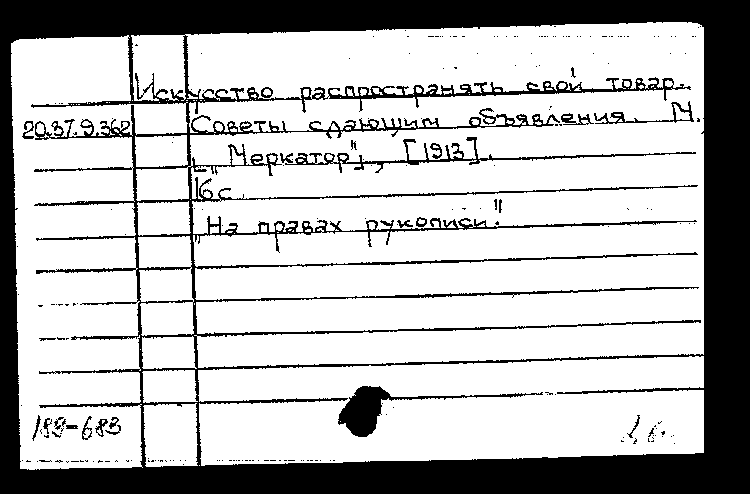 Искусство распространять свой товар.
20.37.9.362 Советы сдающим объявления. М.,
[„Меркатор"], [1913].
16 с.
„На правах рукописи."
188-683